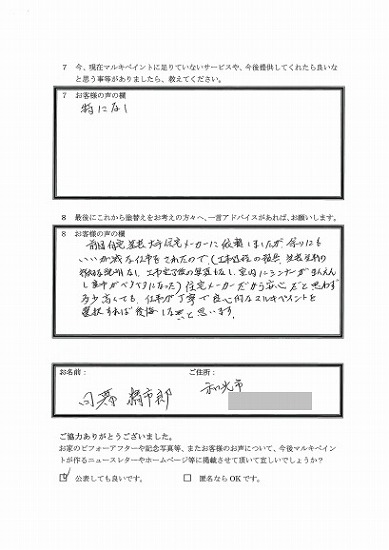 7 今、現在マルキペイントに足りていないサービスや、今後提供してくれたら良いな
と思う事等がありましたら、教えてください。
7 お客様の声の欄
特になし
8 最後にこれから塗替えをお考えの方々へ、一言アドバイスがあれば、お願いします。
8 お客様の声の欄
前回住宅塗装大手住宅メーカーに依頼しましたが、余りにも
いいかげんな仕事をされたので、(工事過程の
説明なし、工事完了後の写真もなし、室内にシンナーが
し床中がベタベタになった)住宅メーカーだから安心だと思わず
多少高くても、仕事が丁寧で良心的なマルキペイントを
選択すれば後悔しないと思います。
お名前: ご住所:
和光市
ご協力ありがとうございました。
お家のビフォーアフターや記念写真等、またお客様のお声について、今後マルキペイ
ントが作るニュースレターやホームページ等に掲載させて頂いて宜しいでしょうか?
公表しても良いです。 匿名ならOKです。